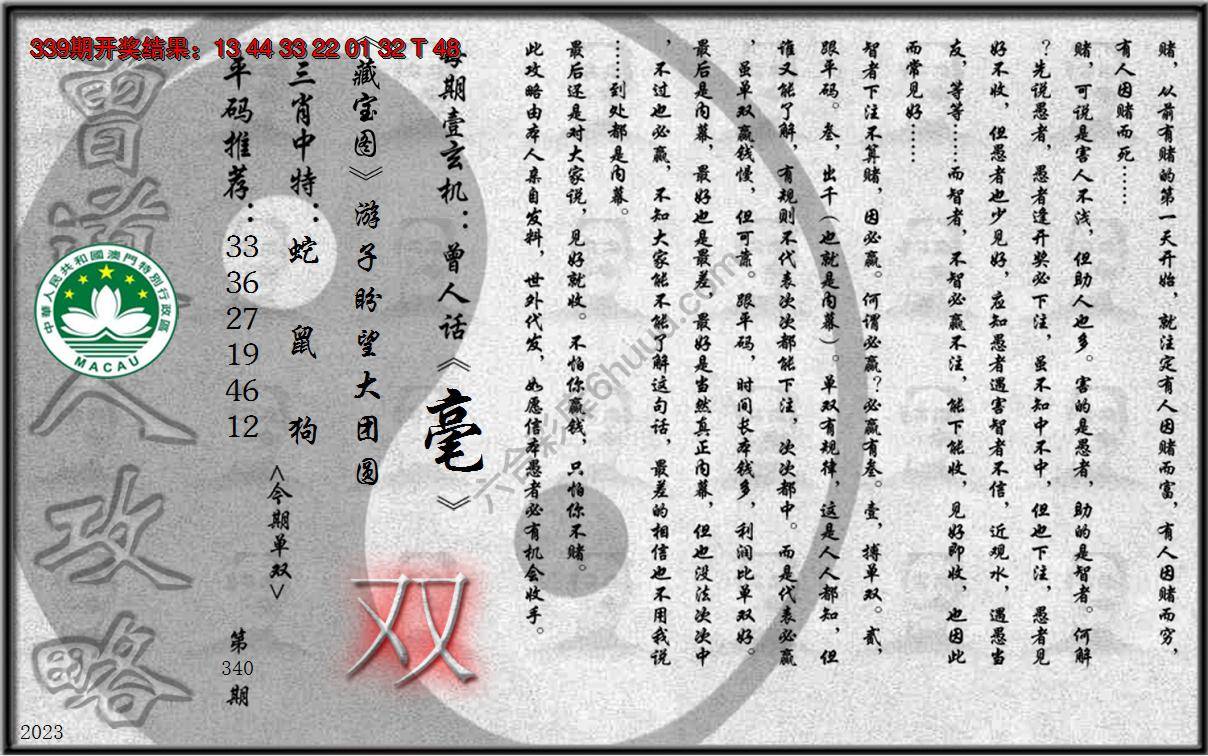 339期开奖结果：13 44 33 22 01 32 T 48
赌，从前有赌的第一天开始，就注定有人因赌而富，有人因赌而穷，
有人因赌而死……
赌，可说是害人不浅，但助人也多。害的是愚者，助的是智者。何解
？先说愚者，愚者逢开奖必下注，虽不知中不中，但也下注，愚者见
好不收，但愚者也少见好，应知愚者遇害智者不信，近观水，遇愚当
友，等等……而智者，不智必赢不注，能下能收，见好即收，也因此
而常见好……
智者下注不算赌，因必赢。何谓必赢？必赢有叁。壹，搏单双。贰，
跟平码。叁，出千（也就是内幕）。单双有规律，这是人人都知，但
谁又能了解，有规则不代表次次都能下注，次次都中。而是代表必赢
，虽单双赢钱慢，但可靠。跟平码，时间长本钱多，利润比单双好。
最后是内幕，最好也是最差，最好是当然真正内幕，但也没法次次中
，不过也必赢，不知大家能不能了解这句话，最差的相信也不用我说
……到处都是内幕。
最后还是对大家说，见好就收。不怕你赢钱，只怕你不赌。
此攻略由本人亲自发料，世外代发，如愿信本愚者必有机会收手。
每期壹玄机：曾人话《毫》
《藏宝图》游子盼望大团圆
三肖中特：蛇 鼠 狗
平码推荐：
33
36
27
19
46
12
<今期单双>
双
第
340
期
曾道人攻略
中華人民共和國澳門特別行政區
MACAU
六合彩库6huuu.com
2023